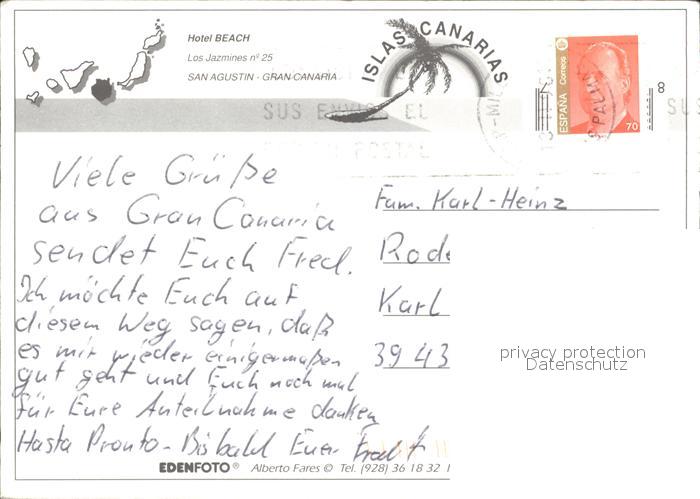 Hotel BEACH
Los Jazmines nº 25
SAN AGUSTIN - GRAN CANARIA
ISLAS CANARIAS
ESPAÑA Correos
70
8
SUS ENVIOS EL
POSTAL
SUS
Viele Grüße
aus Gran Canaria
sendet Euch Fred.
Ich möchte Euch auf
diesem Weg sagen, daß
es mir wieder einigermaßen
gut geht und Euch noch mal
für Eure Anteilnahme danken
Hasta Pronto - Bisbald Euer Fred
Fam. Karl-Heinz
Rode
Karl
39 43
privacy protection
Datenschutz
EDENFOTO® Alberto Fares © Tel. (928) 36 18 32